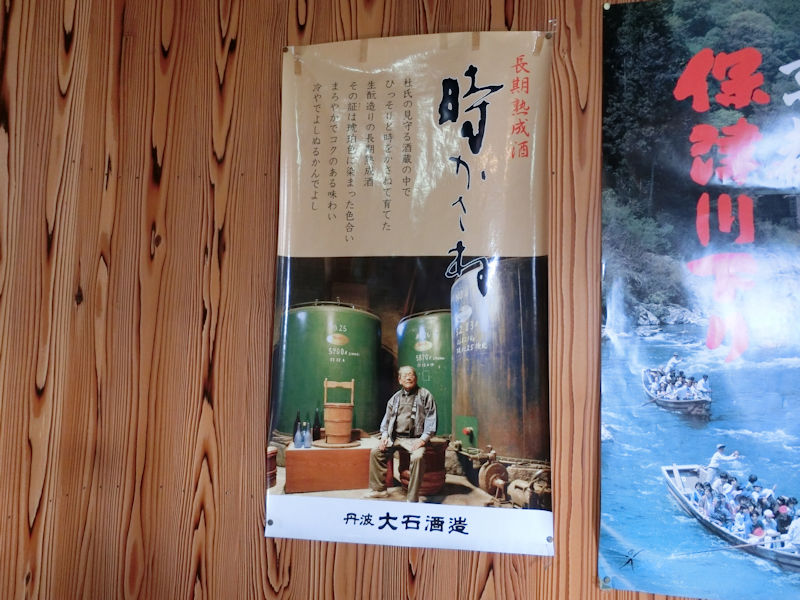 長期熟成酒
時かさね
杜氏の見守る酒蔵の中で
ひっそりと時をかさねて育てた
生酛造りの長期熟成酒
その証は琥珀色に染まった色合い
まろやかでコクのある味わい
冷やでよしぬるかんでよし
丹波 大石酒造
保津川下り